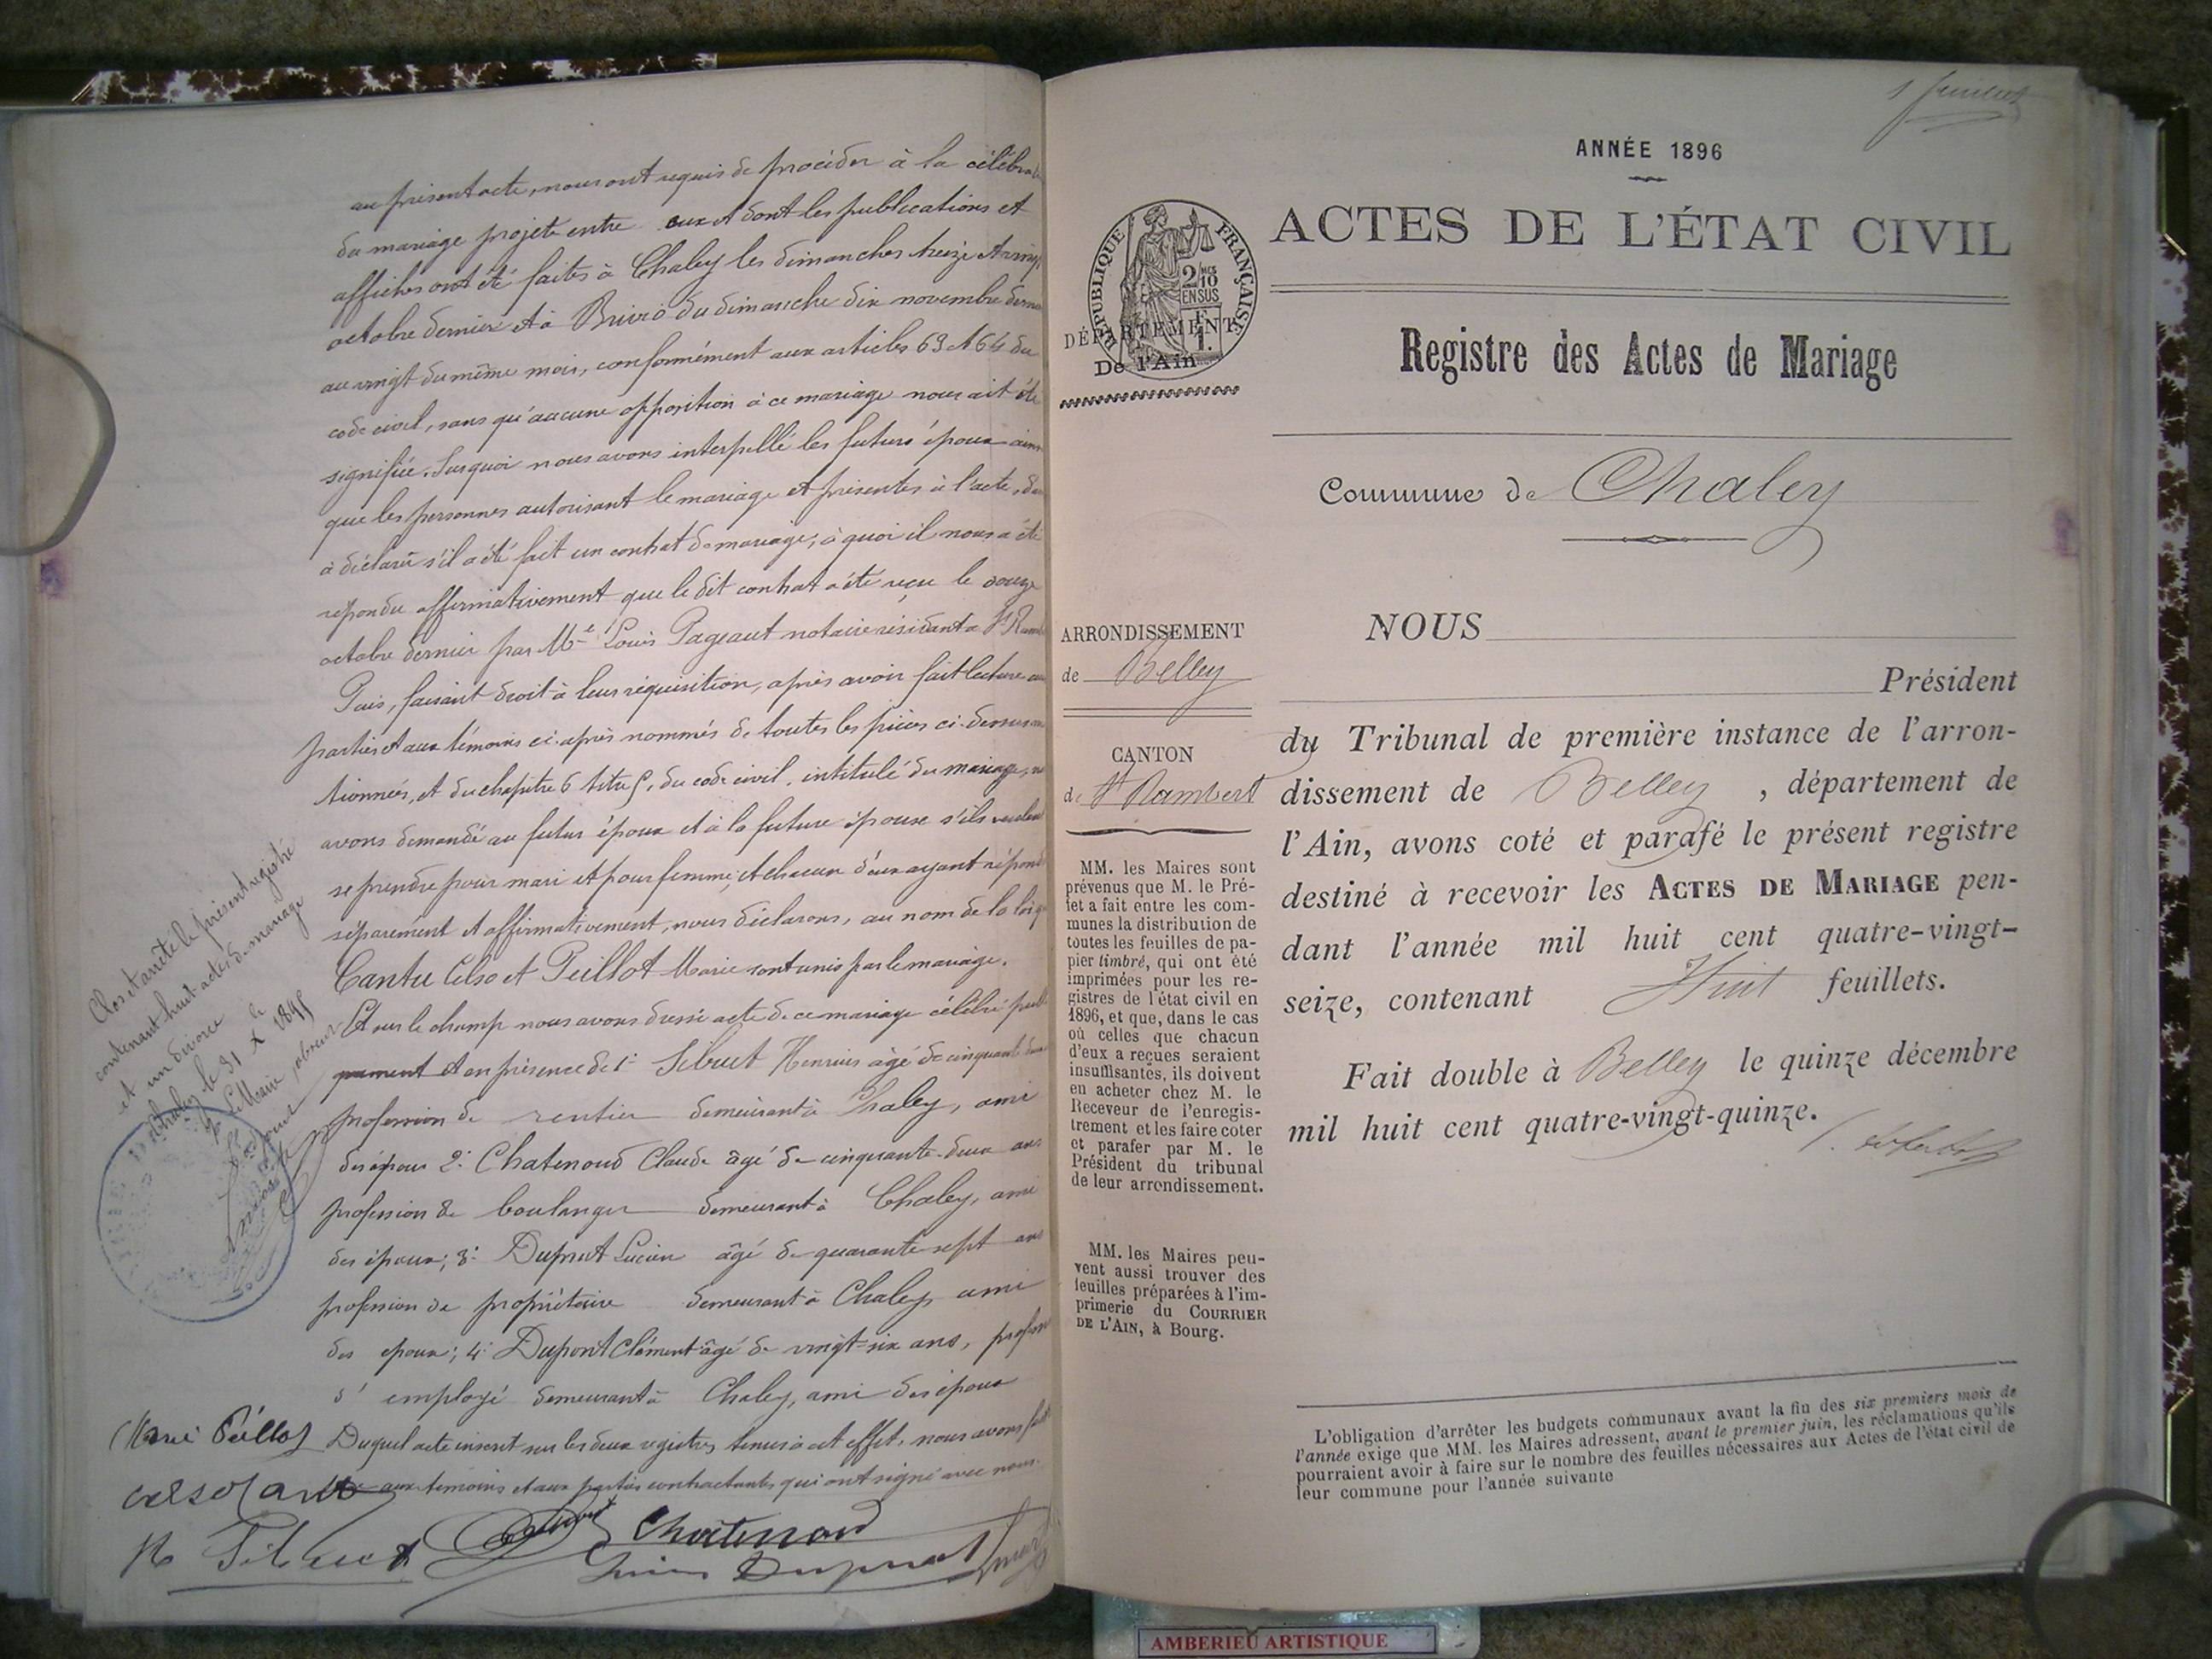 au présent acte, nous ont requis de procéder à la célébra
du mariage projeté entre eux et dont les publications et
affiches ont été faites à Chaley les dimanches treize et vingt
octobre dernier et à du dimanche dix novembre dernier
au vingt du même mois, conformément aux articles 63 et 64 du
code civil, sans qu'aucune opposition à ce mariage nous ait été
signifiée. Surquoi nous avons interpellé les futurs époux ainsi
que les personnes autorisant le mariage et présentes à l'acte,
à déclarer s'il a été fait un contrat de mariage; à quoi il nous a été
répondu affirmativement que le dit contrat a été reçu le douze
octobre dernier par Me Louis Pageaut notaire résidant à St Ramb
Puis, faisant droit à leur réquisition, après avoir fait lecture aux
parties et aux témoins ci-après nommés de toutes les pièces ci-dessus men
tionnées, et du chapitre 6 titre 5, du code civil, intitulé du mariage, n
avons demandé au futur époux et à la future épouse s'ils veulent
se prendre pour mari et pour femme; et chacun d'eux ayant répondu
séparément et affirmativement, nous déclarons, au nom de la loi q
Cantu Celso et Peillot Marie sont unis par le mariage.
Et sur le champ nous avons dressé acte de ce mariage célébré publi
quement et en présence de 1° Sibuet Henrius âgé de cinquante
profession de rentier demeurant à Chaley, ami
des époux 2° Chatenoud Claude âgé de cinquante-deux ans
profession de boulanger demeurant à Chaley, ami
des époux; 3° Duprat Lucien âgé de quarante sept ans
profession de propriétaire demeurant à Chaley ami
des époux; 4° Dupont Clément âgé de vingt-six ans, profess
d' employé demeurant à Chaley, ami des époux
Duquel acte inscrit sur les deux registres tenus à cet effet, nous avons fait
aux témoins et aux parties contractantes qui ont signé avec nous.
Marie Peillot
celso Cantu
Sibuet Dupont Chatenoud
Duprat
Clos et arrêté le présent registre
contenant huit actes de mariage
et un divorce
à Chaley le 31 Xbre 1895
Le Maire absent
l'adjoint
1 feuillet
ANNÉE 1896
ACTES DE L'ÉTAT CIVIL
RÉPUBLIQUE FRANÇAISE
2/10 MES
EN SUS
F
1.
DÉPARTEMENT
De l'Ain
Registre des Actes de Mariage
Commune de Chaley
ARRONDISSEMENT
de Belley
CANTON
de St Rambert
MM. les Maires sont
prévenus que M. le Pré-
fet a fait entre les com-
munes la distribution de
toutes les feuilles de pa-
pier timbré, qui ont été
imprimées pour les re-
gistres de l'état civil en
1896, et que, dans le cas
où celles que chacun
d'eux a reçues seraient
insuffisantes, ils doivent
en acheter chez M. le
Receveur de l'enregis-
trement et les faire coter
et parafer par M. le
Président du tribunal
de leur arrondissement.
MM. les Maires peu-
vent aussi trouver des
feuilles préparées à l'im-
primerie du COURRIER
DE L'AIN, à Bourg.
NOUS
Président
du Tribunal de première instance de l'arron-
dissement de Belley , département de
l'Ain, avons coté et parafé le présent registre
destiné à recevoir les ACTES DE MARIAGE pen-
dant l'année mil huit cent quatre-vingt-
seize, contenant Huit feuillets.
Fait double à Belley le quinze décembre
mil huit cent quatre-vingt-quinze.
L'obligation d'arrêter les budgets communaux avant la fin des six premiers mois de
l'année exige que MM. les Maires adressent, avant le premier juin, les réclamations qu'ils
pourraient avoir à faire sur le nombre des feuilles nécessaires aux Actes de l'état civil de
leur commune pour l'année suivante
AMBERIEU ARTISTIQUE